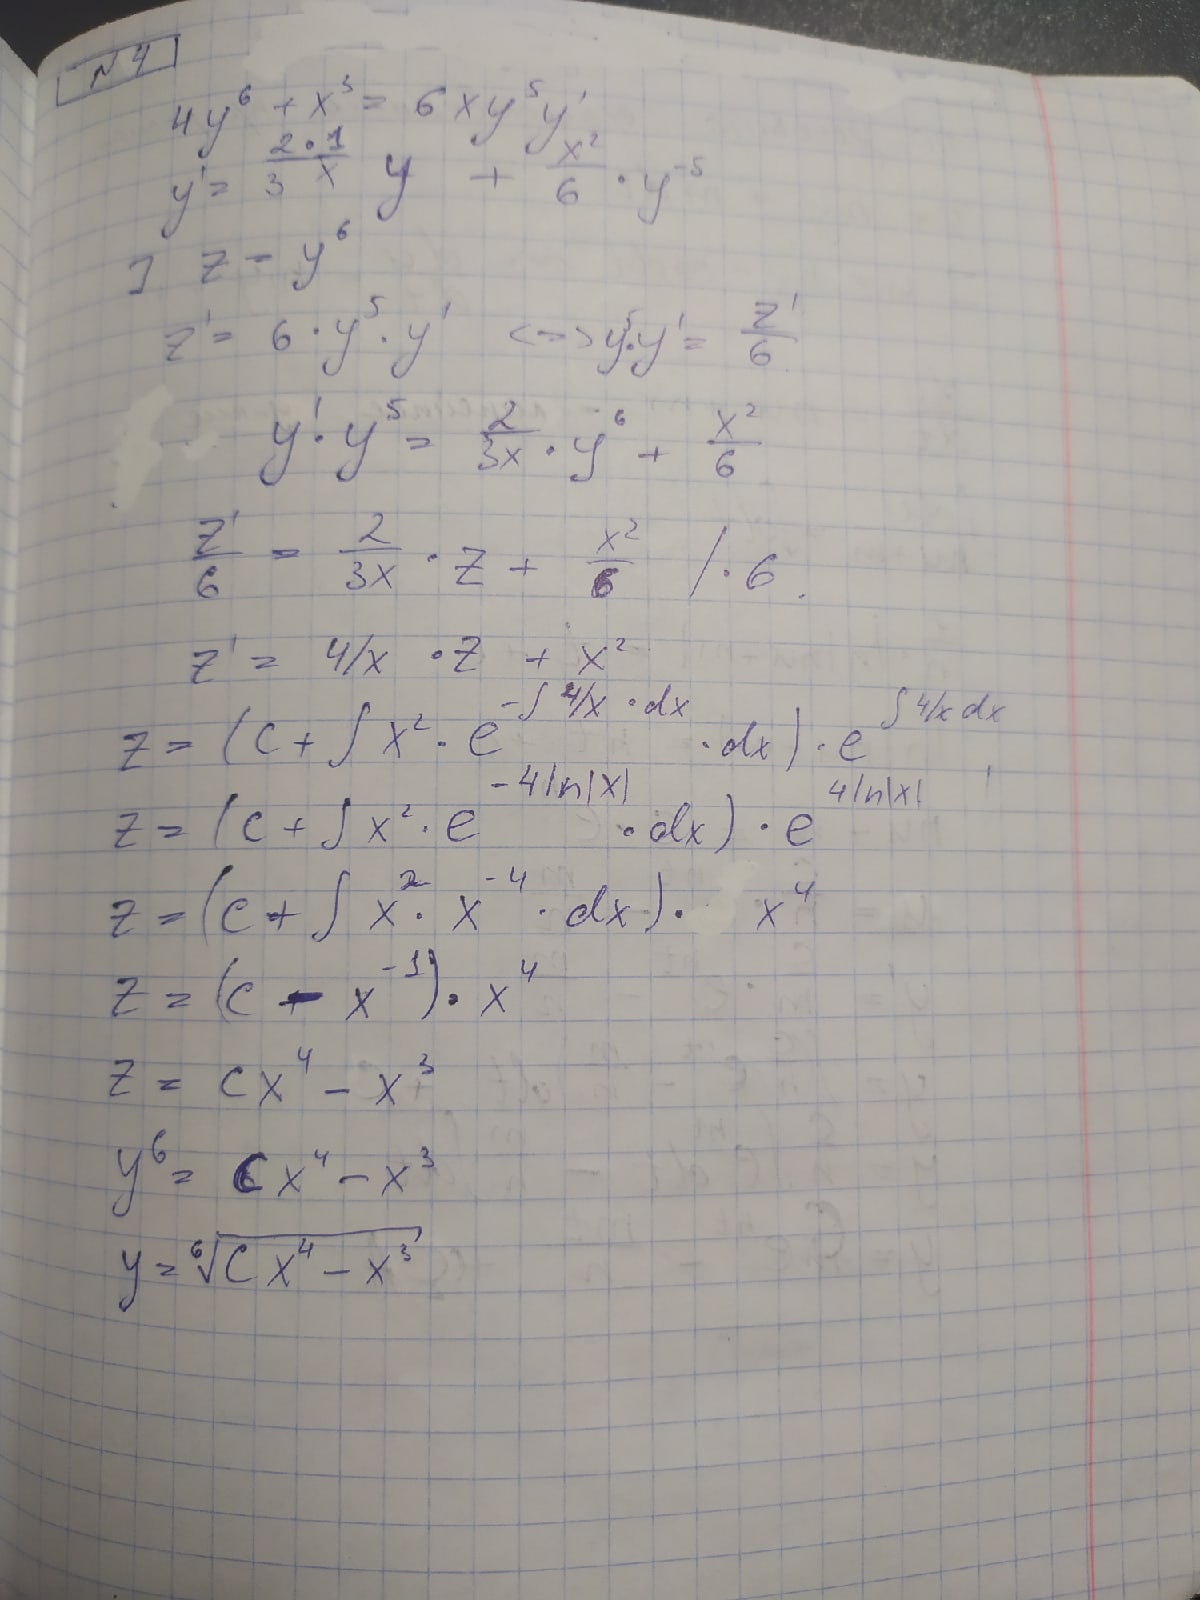 №4
4y⁶ + x³ = 6xy⁵y'
y' = 2·1/3 x y + x²/6 · y⁻⁵
] z = y⁶
z' = 6 · y⁵ · y' <=> y⁵·y' = z'/6
y' · y⁵ = 2/3x · y⁶ + x²/6
z'/6 = 2/3x · z + x²/6 / · 6
z' = 4/x · z + x²
z = (c + ∫ x² · e^(-∫ 4/x · dx) · dx) · e^(∫ 4/x dx)
z = (c + ∫ x² · e^(-4 ln|x|) · dx) · e^(4 ln|x|)
z = (c + ∫ x² · x⁻⁴ · dx) · x⁴
z = (c - x⁻¹) · x⁴
z = cx⁴ - x³
y⁶ = Cx⁴ - x³
y = ⁶√(Cx⁴ - x³)